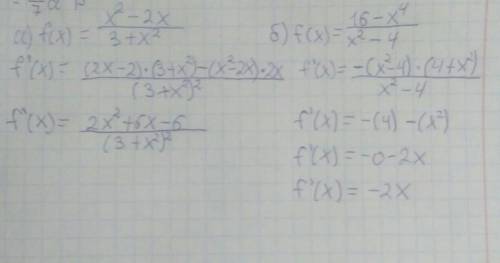 а) f(x) = (x² - 2x)/(3 + x²)
f'(x) = ((2x - 2)·(3 + x²) - (x² - 2x)·2x)/(3 + x²)²
f'(x) = (2x² + 6x - 6)/(3 + x²)²
б) f(x) = (16 - x⁴)/(x² - 4)
f'(x) = (-(x² - 4)·(4 + x²))/(x² - 4)
f'(x) = -(4) - (x²)
f'(x) = -0 - 2x
f'(x) = -2x